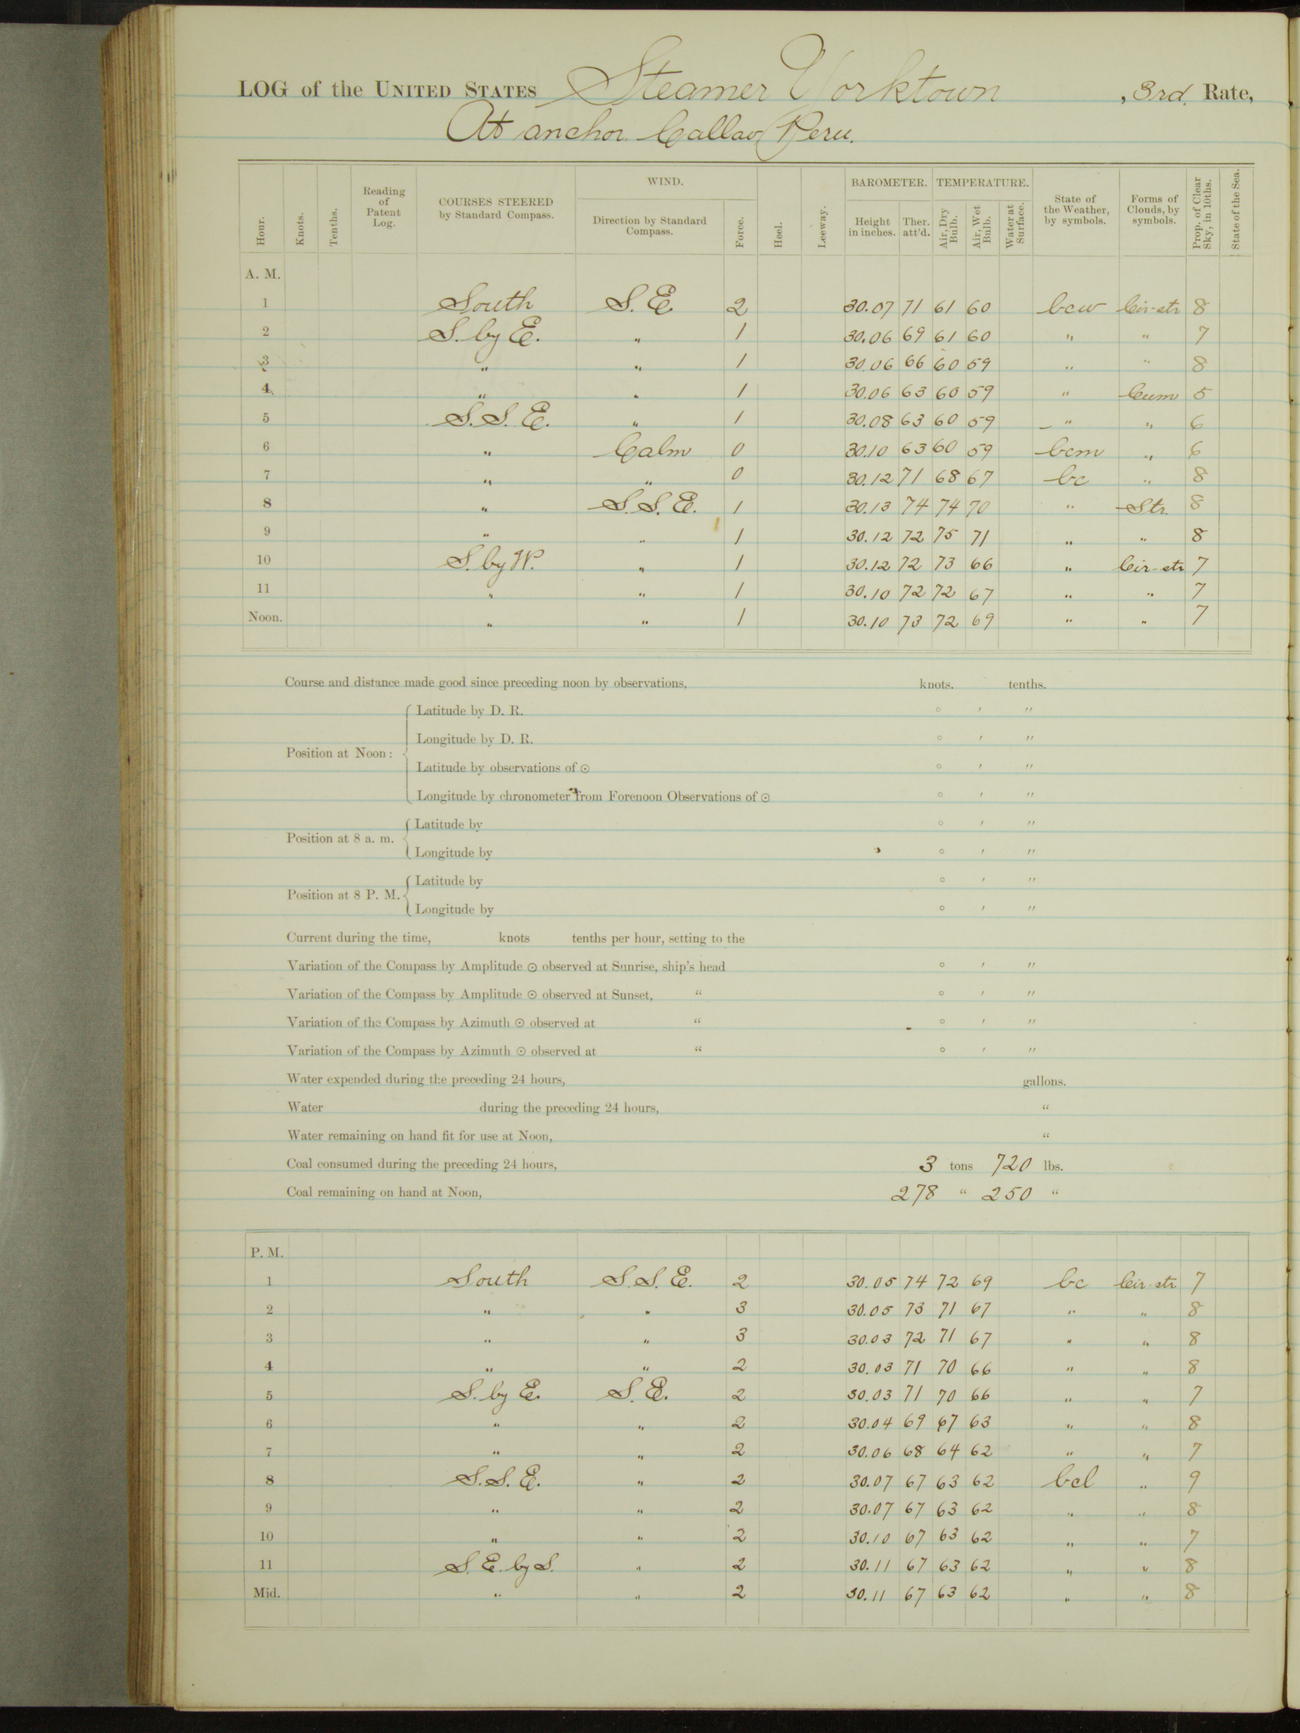 LOG of the UNITED STATES Steamer Yorktown, 3rd. Rate,
At anchor Callao, Peru.
Hour. Knots. Tenths. Reading of Patent Log. COURSES STEERED by Standard Compass. WIND. Direction by Standard Compass. Force. Heel. Leeway. BAROMETER. Height in inches. Ther. att'd. TEMPERATURE. Air, Dry Bulb. Air, Wet Bulb. Water at Surface. State of the Weather, by symbols. Forms of Clouds, by symbols. Prop. of Clear Sky, in 10ths. State of the Sea.
A. M.
1 South S. E. 2 30.07 71 61 60 bcw Cir-str 8
2 S. by E. " 1 30.06 69 61 60 " " 7
3 " " 1 30.06 66 60 59 " " 8
4 " " 1 30.06 63 60 59 " Cum 5
5 S. S. E. " 1 30.08 63 60 59 " " 6
6 " Calm 0 30.10 63 60 59 bcm " 6
7 " " 0 30.12 71 68 67 bc " 8
8 " S. S. E. 1 30.13 74 74 70 " Str. 8
9 " " 1 30.12 72 75 71 " " 8
10 S. by W. " 1 30.12 72 73 66 " Cir-str 7
11 " " 1 30.10 72 72 67 " " 7
Noon. " " 1 30.10 73 72 69 " " 7
Course and distance made good since preceding noon by observations, knots. tenths.
Position at Noon: Latitude by D. R. ° ′ ″
Longitude by D. R. ° ′ ″
Latitude by observations of ☉ ° ′ ″
Longitude by chronometer from Forenoon Observations of ☉ ° ′ ″
Position at 8 a. m. Latitude by ° ′ ″
Longitude by ° ′ ″
Position at 8 P. M. Latitude by ° ′ ″
Longitude by ° ′ ″
Current during the time, knots tenths per hour, setting to the
Variation of the Compass by Amplitude ☉ observed at Sunrise, ship's head ° ′ ″
Variation of the Compass by Amplitude ☉ observed at Sunset, " ° ′ ″
Variation of the Compass by Azimuth ☉ observed at " ° ′ ″
Variation of the Compass by Azimuth ☉ observed at " ° ′ ″
Water expended during the preceding 24 hours, gallons.
Water during the preceding 24 hours, "
Water remaining on hand fit for use at Noon, "
Coal consumed during the preceding 24 hours, 3 tons 720 lbs.
Coal remaining on hand at Noon, 278 " 250 "
P. M.
1 South S. S. E. 2 30.05 74 72 69 bc Cir-str 7
2 " " 3 30.05 73 71 67 " " 8
3 " " 3 30.03 72 71 67 " " 8
4 " " 2 30.03 71 70 66 " " 8
5 S. by E. S. E. 2 30.03 71 70 66 " " 7
6 " " 2 30.04 69 67 63 " " 8
7 " " 2 30.06 68 64 62 " " 7
8 S. S. E. " 2 30.07 67 63 62 bcl " 9
9 " " 2 30.07 67 63 62 " " 8
10 " " 2 30.10 67 63 62 " " 7
11 S. E. by S. " 2 30.11 67 63 62 " " 8
Mid. " " 2 30.11 67 63 62 " " 8